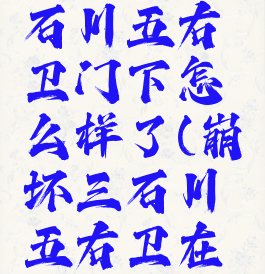 石川五右
卫门下怎
么样了(崩
坏三石川
五右卫在